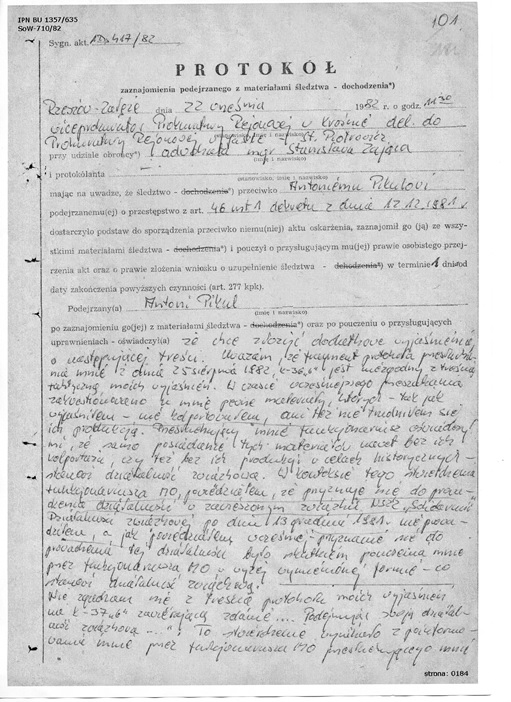 IPN BU 1357/635
SoW-710/82
101
Sygn. akt. 487/82
PROTOKÓŁ
zaznajomienia podejrzanego z materiałami śledztwa - dochodzenia*)
Rzeszów-Załęże dnia 22 września 1982 r. o godz. 11 30
wiceprokurator Prokuratury Rejonowej w Krośnie del. do
Prokuratury Rejonowej St. Piotrowicz
(stanowisko, imię i nazwisko)
przy udziale obrońcy*) adwokata mgr Stanisława Zająca
(imię i nazwisko)
i protokólanta
(stanowisko, imię i nazwisko)
mając na uwadze, że śledztwo - dochodzenie*) przeciwko Antoniemu Pikulowi
podejrzanemu(ej) o przestępstwo z art. 46 ust 1 dekretu z dnia 12.12.1981 r.
dostarczyło podstaw do sporządzenia przeciwko niemu(niej) aktu oskarżenia, zaznajomił go (ją) ze wszy-
stkimi materiałami śledztwa - dochodzenia*) i pouczył o przysługującym mu(jej) prawie osobistego przej-
rzenia akt oraz o prawie złożenia wniosku o uzupełnienie śledztwa - dochodzenia*) w terminie 1 dni od
daty zakończenia powyższych czynności (art. 277 kpk).
Podejrzany(a) Antoni Pikul
(imię i nazwisko)
po zaznajomieniu go(jej) z materiałami śledztwa - dochodzenia*) oraz po pouczeniu o przysługujących
uprawnieniach - oświadczył(a) że chcę złożyć dodatkowe wyjaśnienia
o następującej treści. Uważam, że fragment protokołu przesłucha-
nia mnie z dnia 25 sierpnia 1982, k-36 jest niezgodny z treścią
moich wyjaśnień. W czasie wcześniejszego przeszukania
zakwestionowano u mnie pewne materiały, których - tak jak
wyjaśniłem - nie kolportowałem, ani też nie trudniłem się
ich produkcją. Przesłuchujący mnie funkcjonariusz oświadczył
mi, że samo posiadanie tych materiałów nawet bez ich
kolportażu, czy też bez ich produkcji w celach historycznych -
stanowi działalność związkową. W kontekście tego stwierdzenia
funkcjonariusza MO, powiedziałem, że przyznaję się do prowa-
dzenia działalności w zawieszonym związku NSZZ „Solidarność"
Działalności związkowej po dniu 13 grudnia 1981r. nie prowa-
dziłem, a jak powiedziałem wcześniej - przyznanie się do
prowadzenia tej działalności było skutkiem pouczenia mnie
przez funkcjonariusza MO w wyżej wymienionej formie - co
stanowi działalność związkową.
Nie zgadzam się z treścią protokołu moich wyjaśnień
na k-37 zawierającą zdanie „... Podejmując swoją działal-
ność związkową ...". To stwierdzenie wynikało z poinformo-
wania mnie przez funkcjonariusza MO przesłuchującego mnie
strona: 0184